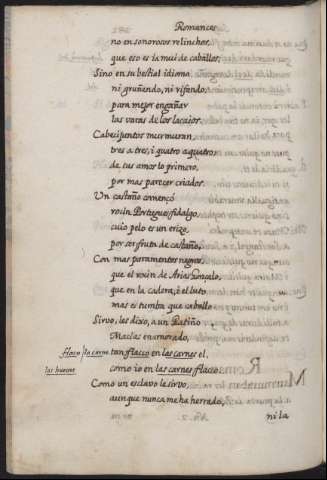 Romances
no en sonorosos relinchos,
que eso es la mui de caballos.
Sino en su bestial idioma
ni gruñendo, ni rifando,
para mejor engañar
las varas de los lacaios.
Cabeisjuntos murmuran,
tres a tres, i quatro a quatro,
de sus amos lo primero,
por mas parecer criados.
Un castaño comencó
rocin Portugues fidalgo
cuio pelo es un erizo,
por ser fruta de castaño,
Con mas paramentos negros,
que el rocin de Arias Gonçalo,
que en la cadera, è el luto
mas es tumba que caballo
Sirvo, les dixo, a un Ratiño
Macias enamorado,
flaco la carne tan flacco en las carnes el,
los huesos como io en las carnes flaco.
Como un esclavo le sirvo,
aunque nunca me ha herrado,
Murmuraban los
ni la